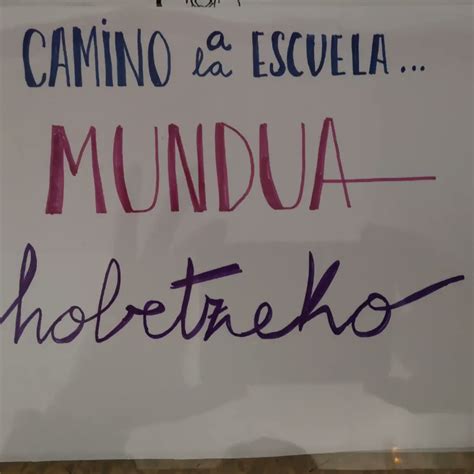 CAMINO a la ESCUELA...
MUNDUA
hobetzeko